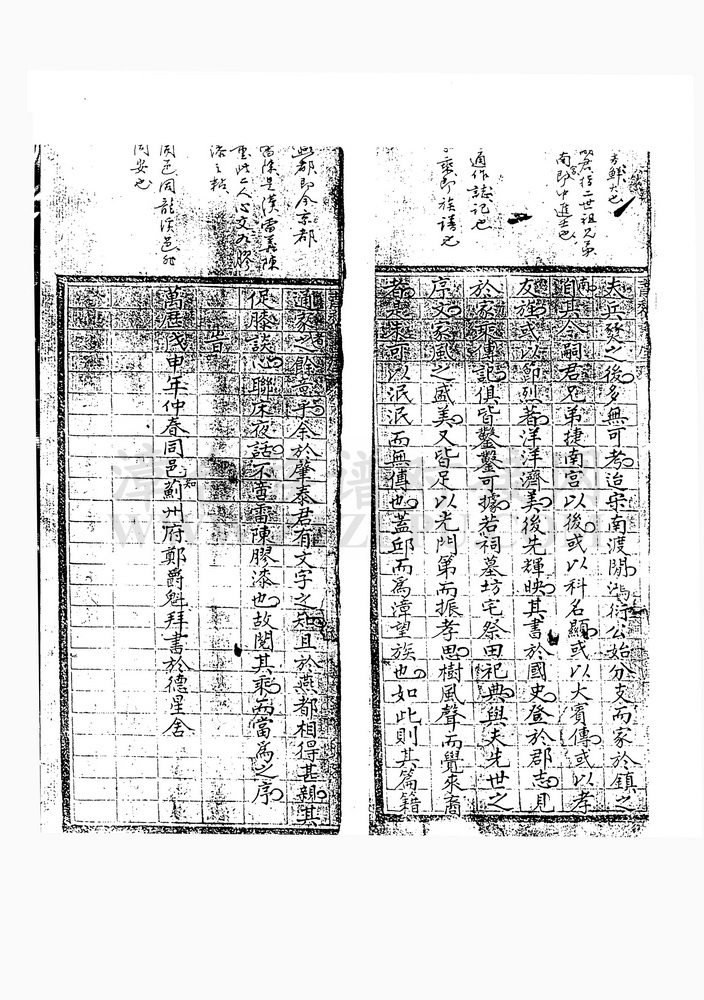 夫兵燹之後多無可考迨宋南渡閒鴻衍公始分支而家於鎮之
自其令嗣君兄弟捷南宮以後或以科名顯或以大賓傳或以孝
友旌或以節烈著洋洋濟美後先輝映其書於國史登於郡志見
於家乘傳記俱皆鑿鑿可據若祠墓坊宅祭田祀典與夫先世之
序文家風之盛美又皆足以光門第而振孝思樹風聲而覺來裔
可以泯泯而無傳也蓋邱而為漳望族也如此則其篇籍
通家之餘意乎余於肇泰君有文字之知且於燕都相得甚親其
促膝談心聯床夜話不啻雷陳膠漆也故閱其乘而當為之序
旹
萬歷戊申年仲春同邑薊州府知鄭爵魁拜書於德星舍
南即中進士也
適作誌記也
乘即族譜也
燕都即今京都
雷陳是漢雷義陳
重此二人心交如膠
漆之黏
同邑同龍溪邑非
同安也